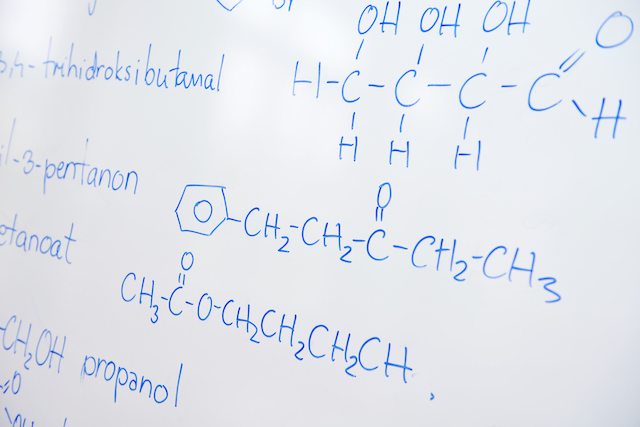 OH OH OH O
3,4-trihidroksibutanal H-C-C-C-C H
H H H
il-3-pentanon
O
CH2-CH2-C-CH2-CH3
etanoat
O
CH3-C-O-CH2CH2CH2CH
-CH2OH propanol
O